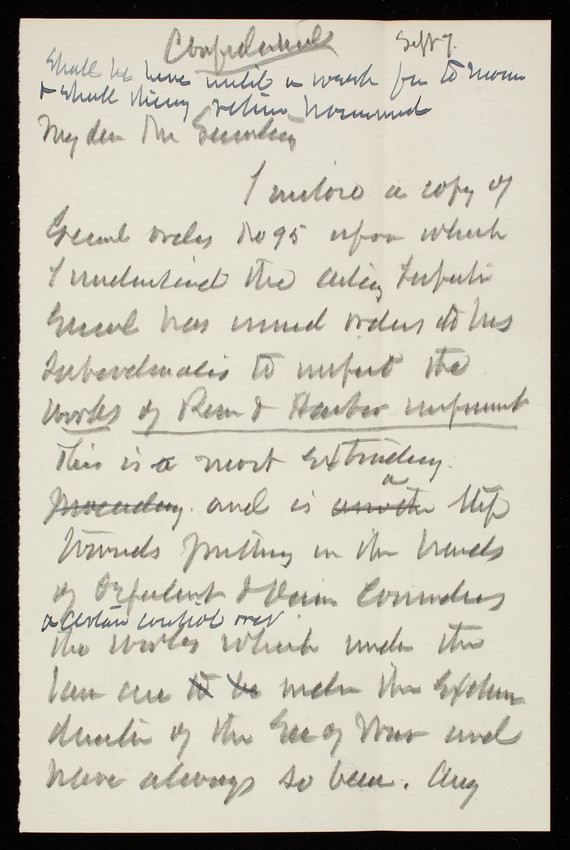 Confidential Sept 7.
Shall be here until a week from to morrow
& shall then return homeward
My dear Mr Secretary
I enclose a copy of
General orders No 95 upon which
I understand the acting Inspector
General has issued orders to his
Subordinates to inspect the
works of River & Harbor improvement
This is a most extraordinary
proceeding and is another a step
towards putting in the hands
of Department & Division Commanders
a certain control over
the works which under the
law are to be under the
direction of the Sec of War and
have always so been. Any